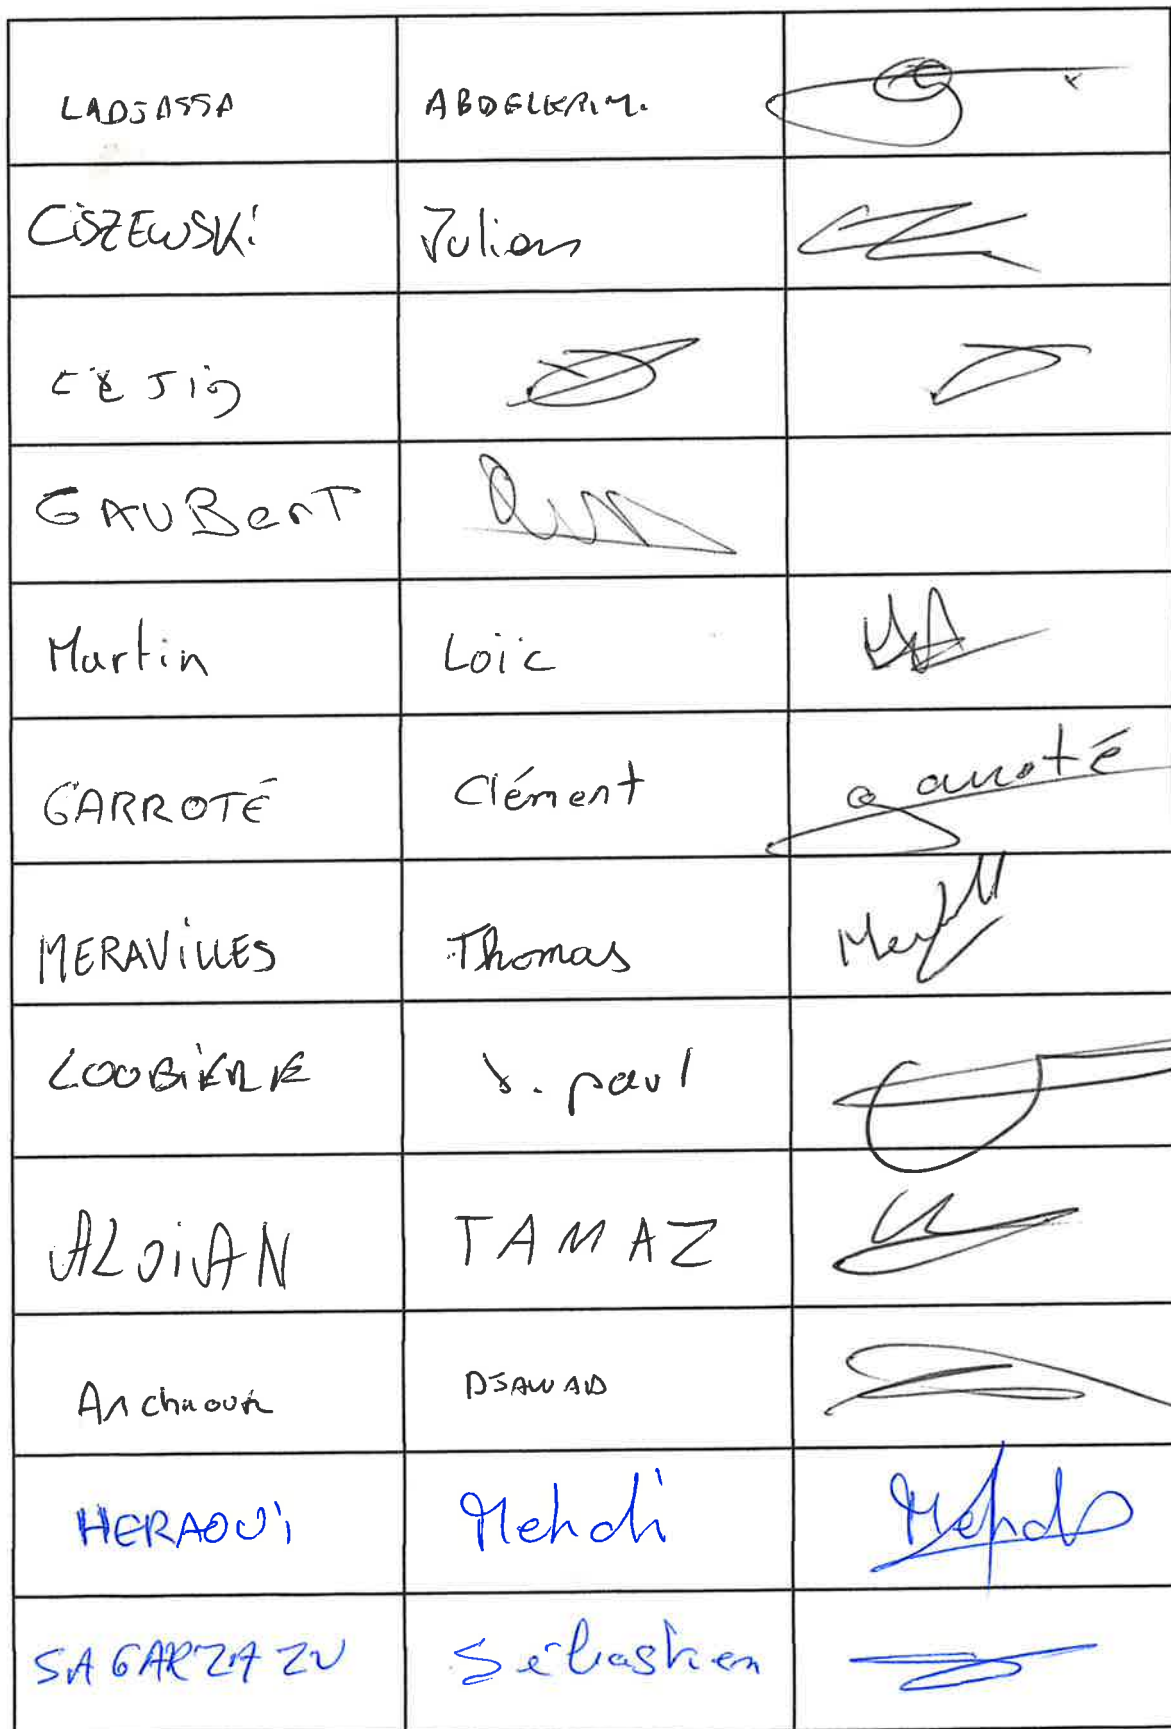 LADJASSA ABDELKRIM.
CiSZEWSKi Julien
GAUBerT
Martin Loïc
GARROTÉ Clément garroté
MERAViLLES Thomas
LOOBiERE J. paul
ALOiAN TAMAZ
Archaour DJAWAD
HERAOUi Mehdi Mehdi
SAGARZAZU Sébastien